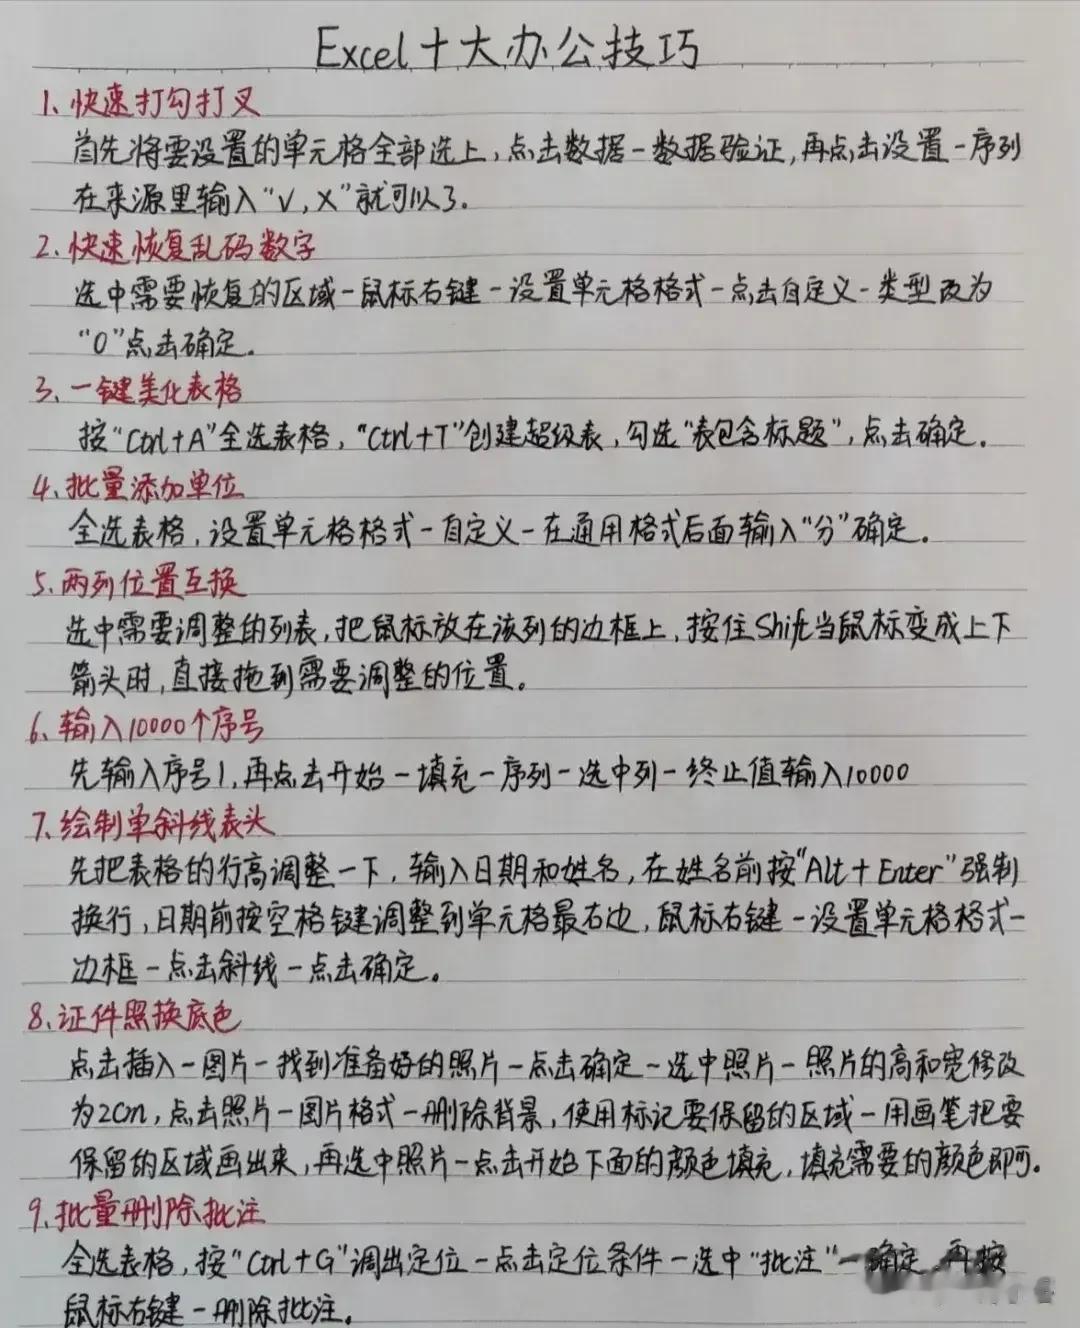 Excel十大办公技巧
1、快速打勾打叉
首先将要设置的单元格全部选上,点击数据-数据验证,再点击设置-序列
在来源里输入“√,X”就可以了.
2、快速恢复乱码数字
选中需要恢复的区域-鼠标右键-设置单元格格式-点击自定义-类型改为
“0”点击确定。
3、一键美化表格
按“Ctrl+A”全选表格,“Ctrl+T”创建超级表,勾选“表包含标题”,点击确定。
4、批量添加单位
全选表格,设置单元格格式-自定义-在通用格式后面输入“分”确定。
5、两列位置互换
选中需要调整的列表,把鼠标放在该列的边框上,按住Shift当鼠标变成上下
箭头时,直接拖到需要调整的位置。
6、输入10000个序号
先输入序号1,再点击开始-填充-序列-选中列-终止值输入10000
7、绘制单斜线表头
先把表格的行高调整一下,输入日期和姓名,在姓名前按“Alt+Enter”强制
换行,日期前按空格键调整到单元格最右边,鼠标右键-设置单元格格式-
边框-点击斜线-点击确定。
8、证件照换底色
点击插入-图片-找到准备好的照片-点击确定-选中照片-照片的高和宽修改
为2cm,点击照片-图片格式-删除背景,使用标记要保留的区域-用画笔把要
保留的区域画出来,再选中照片-点击开始下面的颜色填充,填充需要的颜色即可。
9、批量删除批注
全选表格,按“Ctrl+G”调出定位-点击定位条件-选中“批注”-确定,再按
鼠标右键-删除批注。